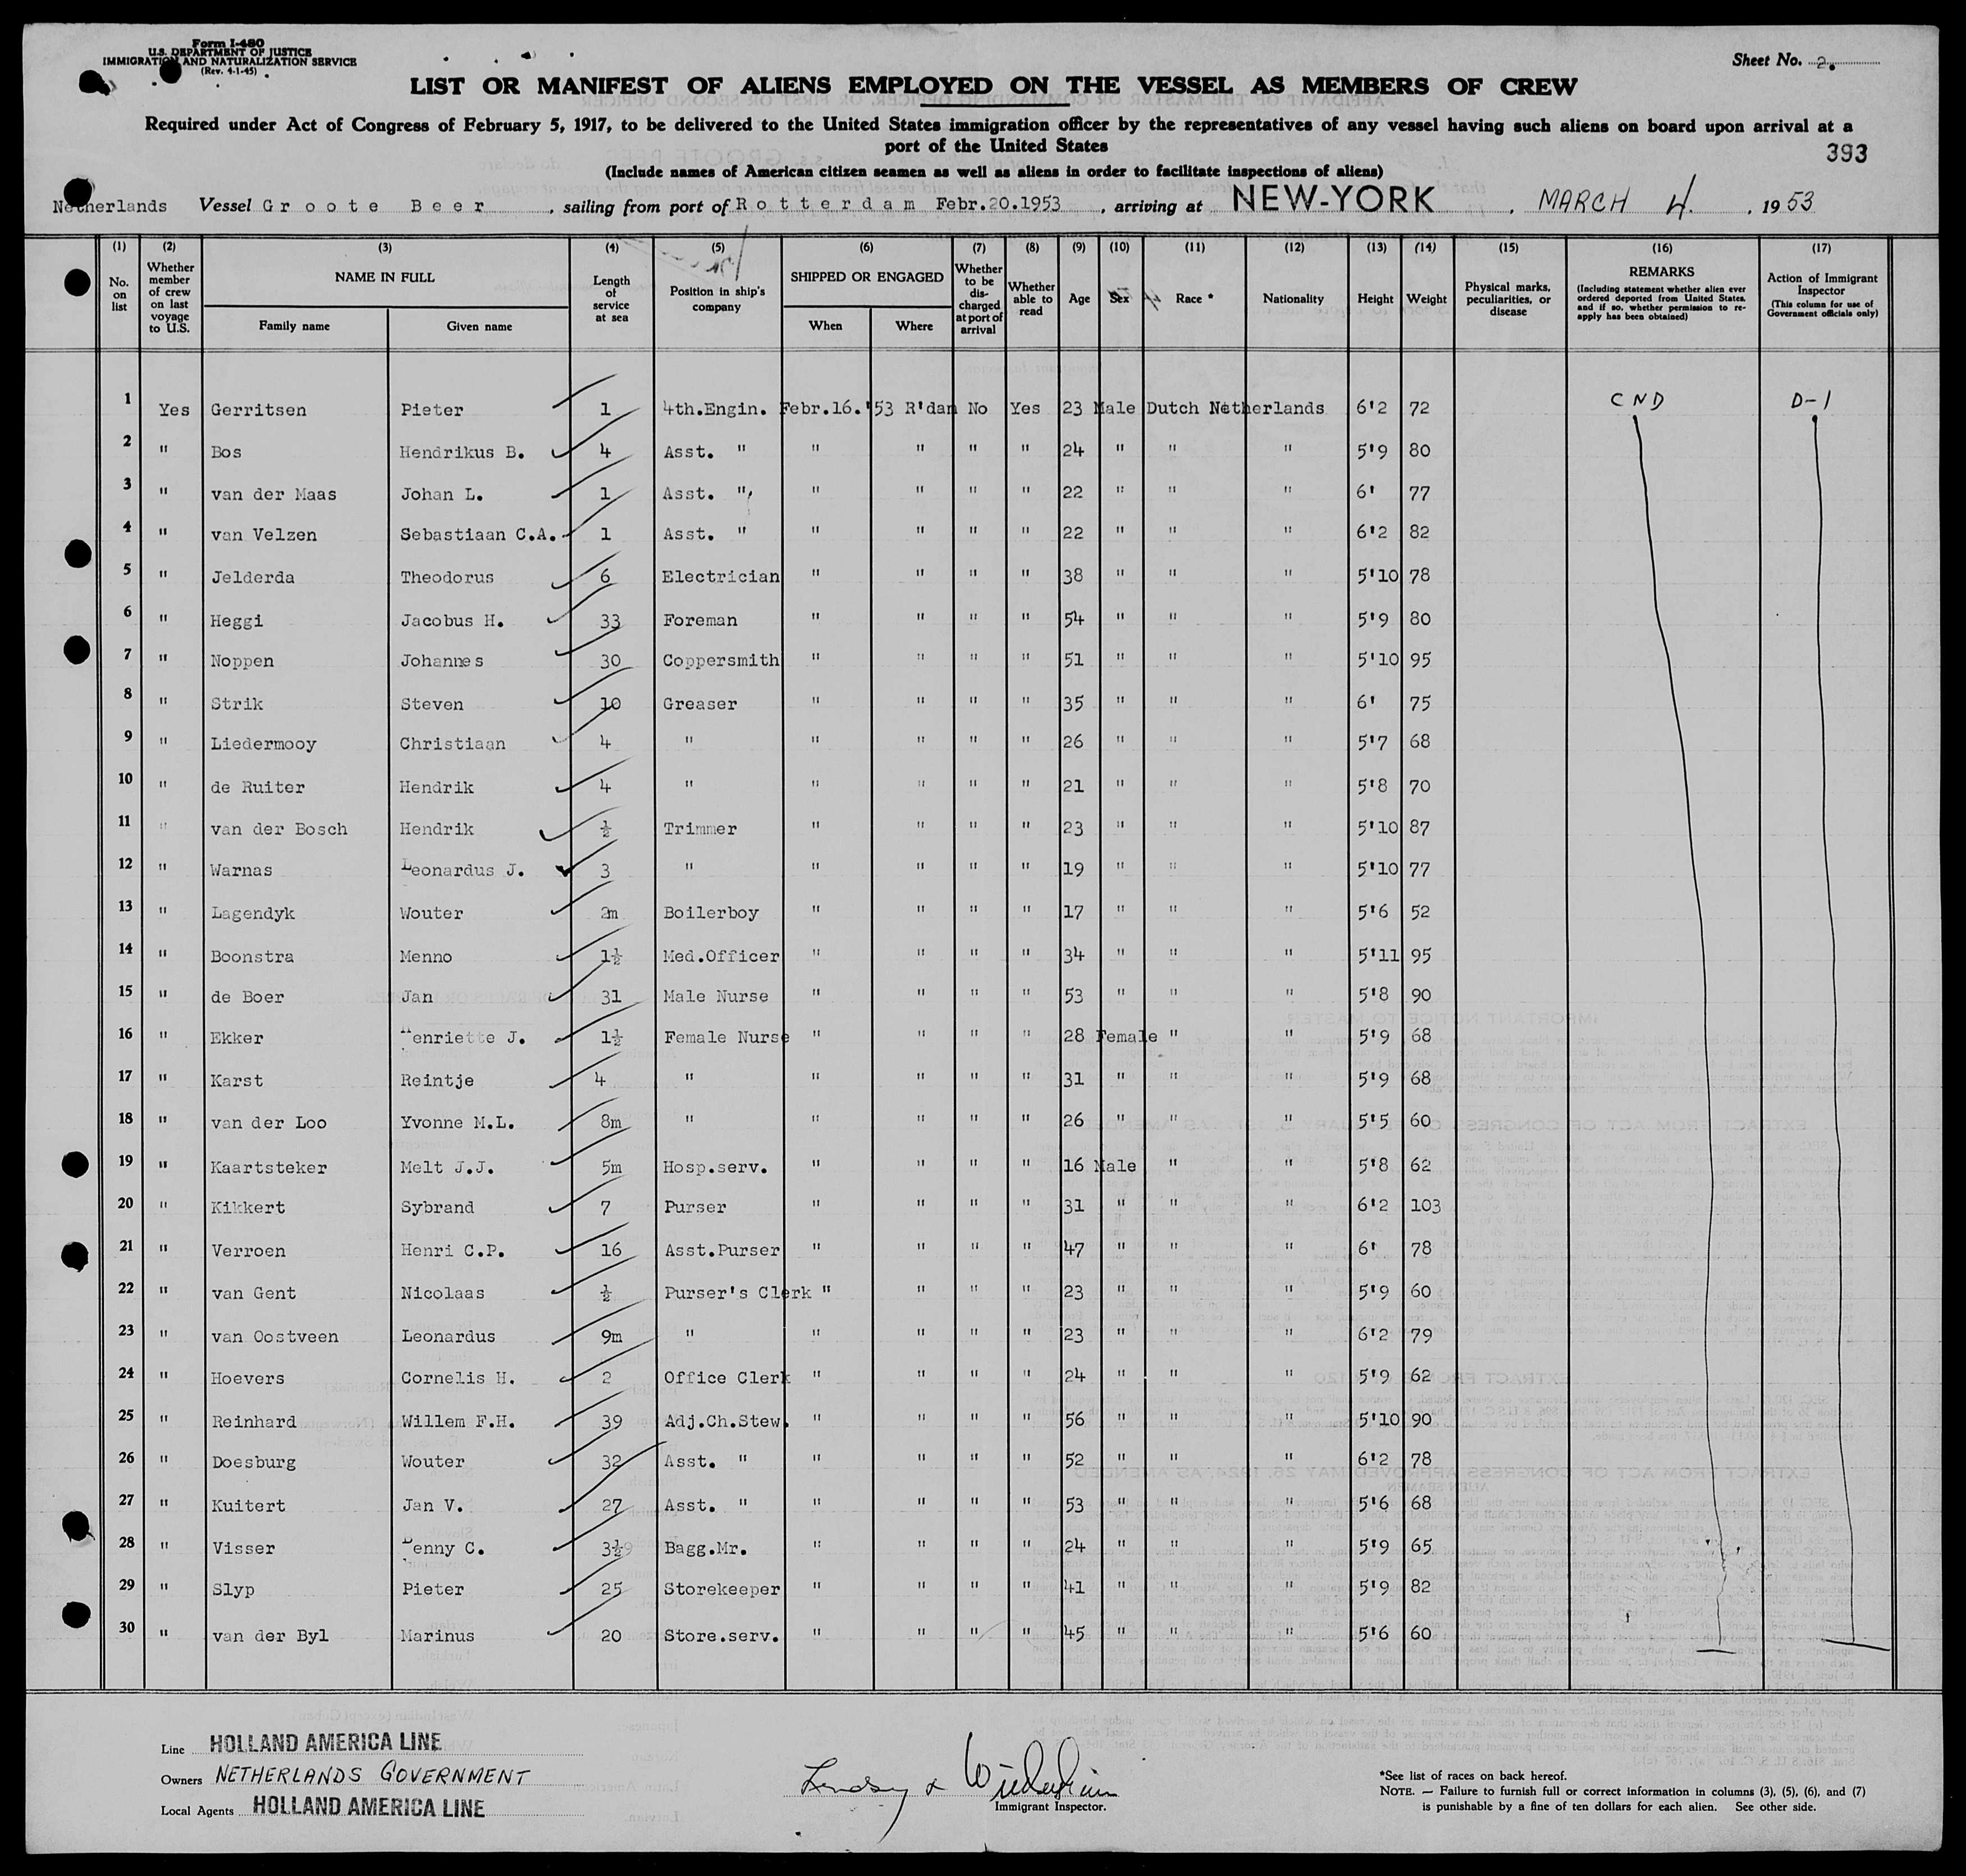 Form I-480
U.S. DEPARTMENT OF JUSTICE
IMMIGRATION AND NATURALIZATION SERVICE
(Rev. 4-1-45)
Sheet No. 2.
LIST OR MANIFEST OF ALIENS EMPLOYED ON THE VESSEL AS MEMBERS OF CREW
Required under Act of Congress of February 5, 1917, to be delivered to the United States immigration officer by the representatives of any vessel having such aliens on board upon arrival at a
port of the United States
393
(Include names of American citizen seamen as well as aliens in order to facilitate inspections of aliens)
Netherlands Vessel Groote Beer, sailing from port of Rotterdam Febr.20.1953, arriving at NEW-YORK, MARCH 4., 1953
(1) (2) (3) (4) (5) (6) (7) (8) (9) (10) (11) (12) (13) (14) (15) (16) (17)
No. on list
Whether member of crew on last voyage to U.S.
NAME IN FULL
Family name
Given name
Length of service at sea
Position in ship's company
SHIPPED OR ENGAGED
When
Where
Whether to be discharged at port of arrival
Whether able to read
Age
Sex
Race *
Nationality
Height
Weight
Physical marks, peculiarities, or disease
REMARKS
(Including statement whether alien ever ordered deported from United States, and if so, whether permission to re-apply has been obtained)
Action of Immigrant Inspector
(This column for use of Government officials only)
1 Yes Gerritsen Pieter 1 4th.Engin. Febr.16.'53 R'dam No Yes 23 Male Dutch Netherlands 6'2 72 CND D-1
2 " Bos Hendrikus B. 4 Asst. " " " " " 24 " " " 5'9 80
3 " van der Maas Johan L. 1 Asst. " " " " " 22 " " " 6' 77
4 " van Velzen Sebastiaan C.A. 1 Asst. " " " " " 22 " " " 6'2 82
5 " Jelderda Theodorus 6 Electrician " " " " 38 " " " 5'10 78
6 " Heggi Jacobus H. 33 Foreman " " " " 54 " " " 5'9 80
7 " Noppen Johannes 30 Coppersmith " " " " 51 " " " 5'10 95
8 " Strik Steven 10 Greaser " " " " 35 " " " 6' 75
9 " Liedermooy Christiaan 4 " " " " " 26 " " " 5'7 68
10 " de Ruiter Hendrik 4 " " " " " 21 " " " 5'8 70
11 " van der Bosch Hendrik ½ Trimmer " " " " 23 " " " 5'10 87
12 " Warnas Leonardus J. 3 " " " " " 19 " " " 5'10 77
13 " Lagendyk Wouter 2m Boilerboy " " " " 17 " " " 5'6 52
14 " Boonstra Menno 1½ Med.Officer " " " " 34 " " " 5'11 95
15 " de Boer Jan 31 Male Nurse " " " " 53 " " " 5'8 90
16 " Ekker Henriette J. 1½ Female Nurse " " " " 28 Female " " 5'9 68
17 " Karst Reintje 4 " " " " " 31 " " " 5'9 68
18 " van der Loo Yvonne M.L. 8m " " " " " 26 " " " 5'5 60
19 " Kaartsteker Melt J.J. 5m Hosp.serv. " " " " 16 Male " " 5'8 62
20 " Kikkert Sybrand 7 Purser " " " " 31 " " " 6'2 103
21 " Verroen Henri C.P. 16 Asst.Purser " " " " 47 " " " 6' 78
22 " van Gent Nicolaas ½ Purser's Clerk " " " " 23 " " " 5'9 60
23 " van Oostveen Leonardus 9m " " " " " 23 " " " 6'2 79
24 " Hoevers Cornelis H. 2 Office Clerk " " " " 24 " " " 5'9 62
25 " Reinhard Willem F.H. 39 Adj.Ch.Stew. " " " " 56 " " " 5'10 90
26 " Doesburg Wouter 32 Asst. " " " " " 52 " " " 6'2 78
27 " Kuitert Jan V. 27 Asst. " " " " " 53 " " " 5'6 68
28 " Visser Benny C. 3½ Bagg.Mr. " " " " 24 " " " 5'9 65
29 " Slyp Pieter 25 Storekeeper " " " " 41 " " " 5'9 82
30 " van der Byl Marinus 20 Store.serv. " " " " 45 " " " 5'6 60
Line HOLLAND AMERICA LINE
Owners NETHERLANDS GOVERNMENT
Local Agents HOLLAND AMERICA LINE
Immigrant Inspector.
*See list of races on back hereof.
NOTE. — Failure to furnish full or correct information in columns (3), (5), (6), and (7)
is punishable by a fine of ten dollars for each alien. See other side.